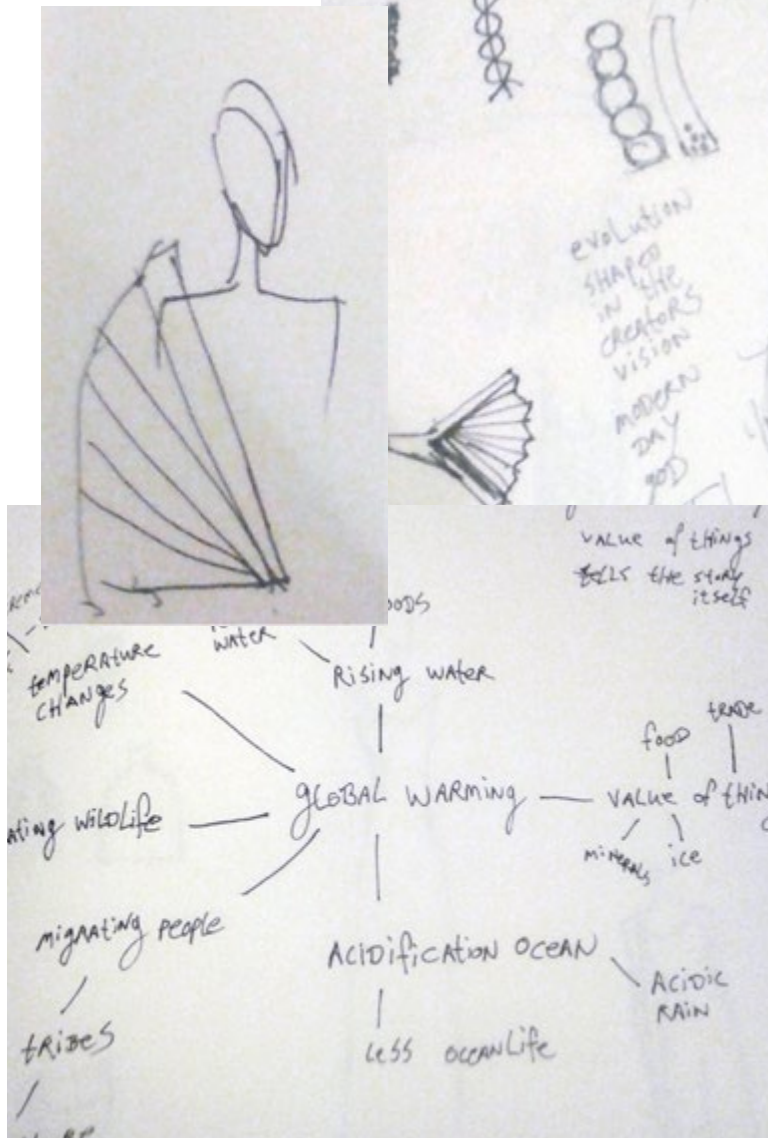 evolution
shaped
in the
creators
vision
modern
day
god
value of things
tells the story
itself
water
temperature
changes
Rising water
trade
food
global warming
value of
wildlife
minerals
ice
migrating people
Acidification ocean
Acidic
rain
tribes
less oceanlife